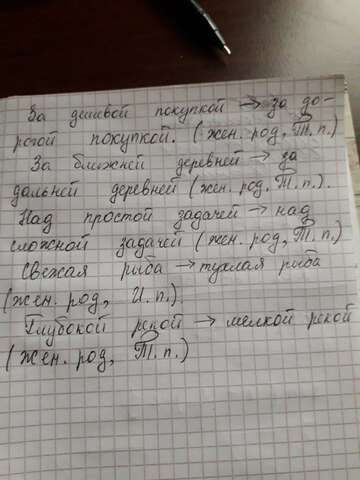 За дешевой покупкой → за до-
рогой покупкой. (жен. род, Т. п.)
За ближней деревней → за
дальней деревней (жен. род, Т. п.).
Над простой задачей → над
сложной задачей (жен. род, Т. п.)
Свежая рыба → тухлая рыба
(жен. род, И. п.).
Глубокой рекой → мелкой рекой
(жен. род, Т. п.)